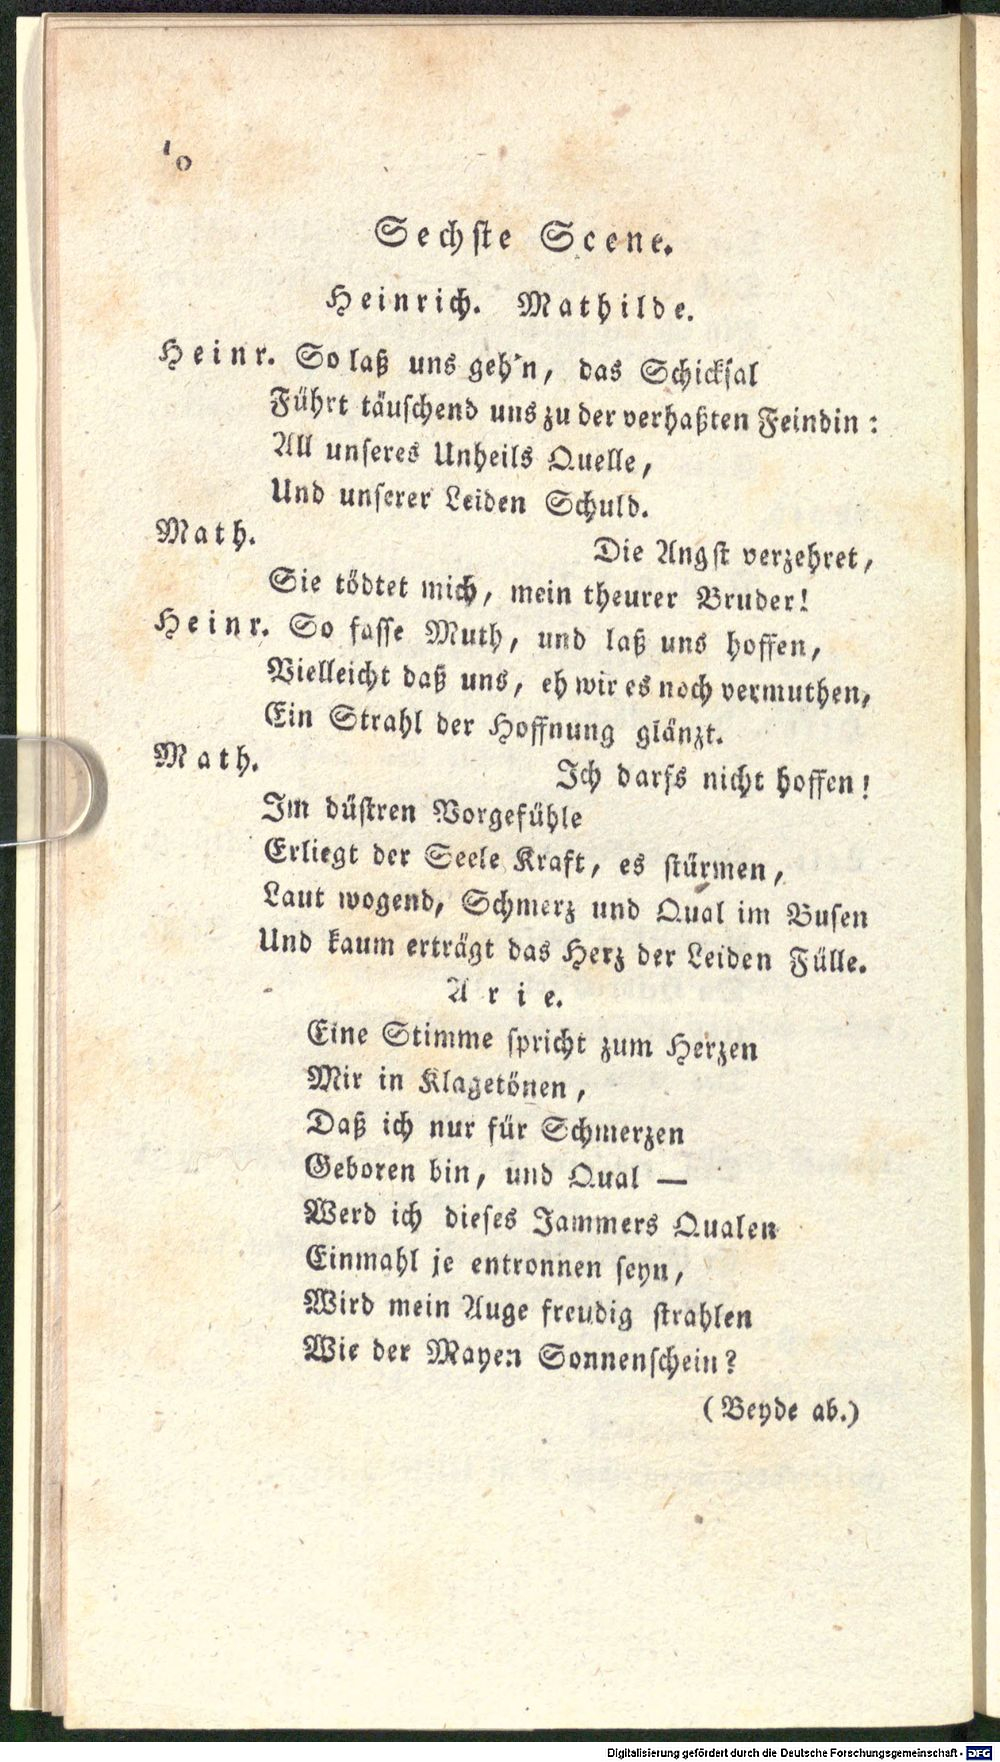 10
Sechste Scene.
Heinrich. Mathilde.
Heinr. So laß uns geh'n, das Schicksal
Führt täuschend uns zu der verhaßten Feindin:
All unseres Unheils Quelle,
Und unserer Leiden Schuld.
Math.
Die Angst verzehret,
Sie tödtet mich, mein theurer Bruder!
Heinr. So fasse Muth, und laß uns hoffen,
Vielleicht daß uns, eh wir es noch vermuthen,
Ein Strahl der Hoffnung glänzt.
Math.
Ich darfs nicht hoffen!
Im düstren Vorgefühle
Erliegt der Seele Kraft, es stürmen,
Laut wogend, Schmerz und Qual im Busen
Und kaum erträgt das Herz der Leiden Fülle.
Arie.
Eine Stimme spricht zum Herzen
Mir in Klagetönen,
Daß ich nur für Schmerzen
Geboren bin, und Qual —
Werd ich dieses Jammers Qualen
Einmahl je entronnen seyn,
Wird mein Auge freudig strahlen
Wie der Mayen Sonnenschein?
(Beyde ab.)
Digitalisierung gefördert durch die Deutsche Forschungsgemeinschaft - DFG